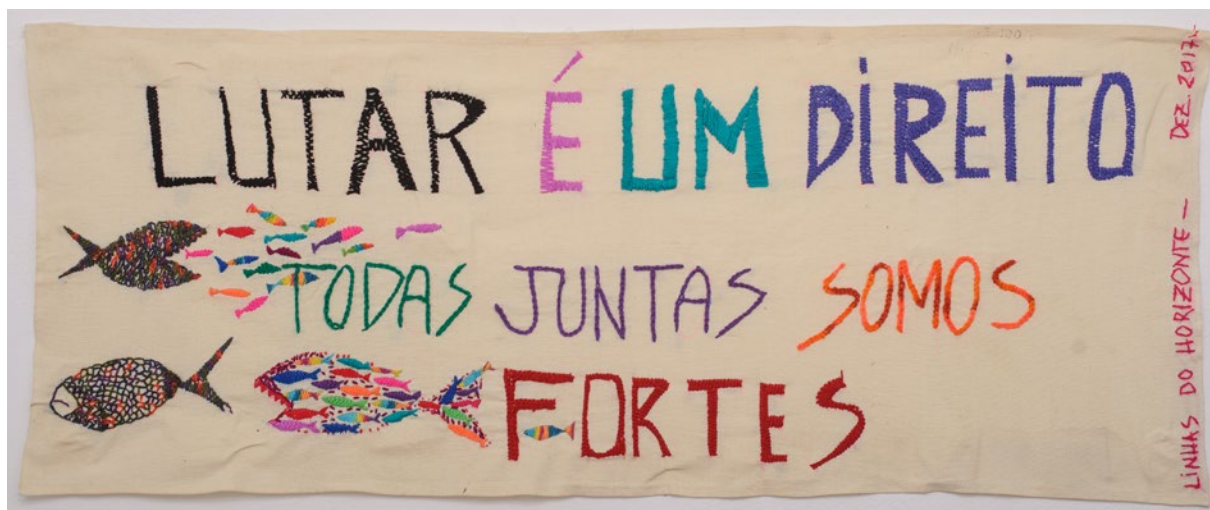 LUTAR É UM DIREITO
TODAS JUNTAS SOMOS
FORTES
LINHAS DO HORIZONTE — DEZ 2017